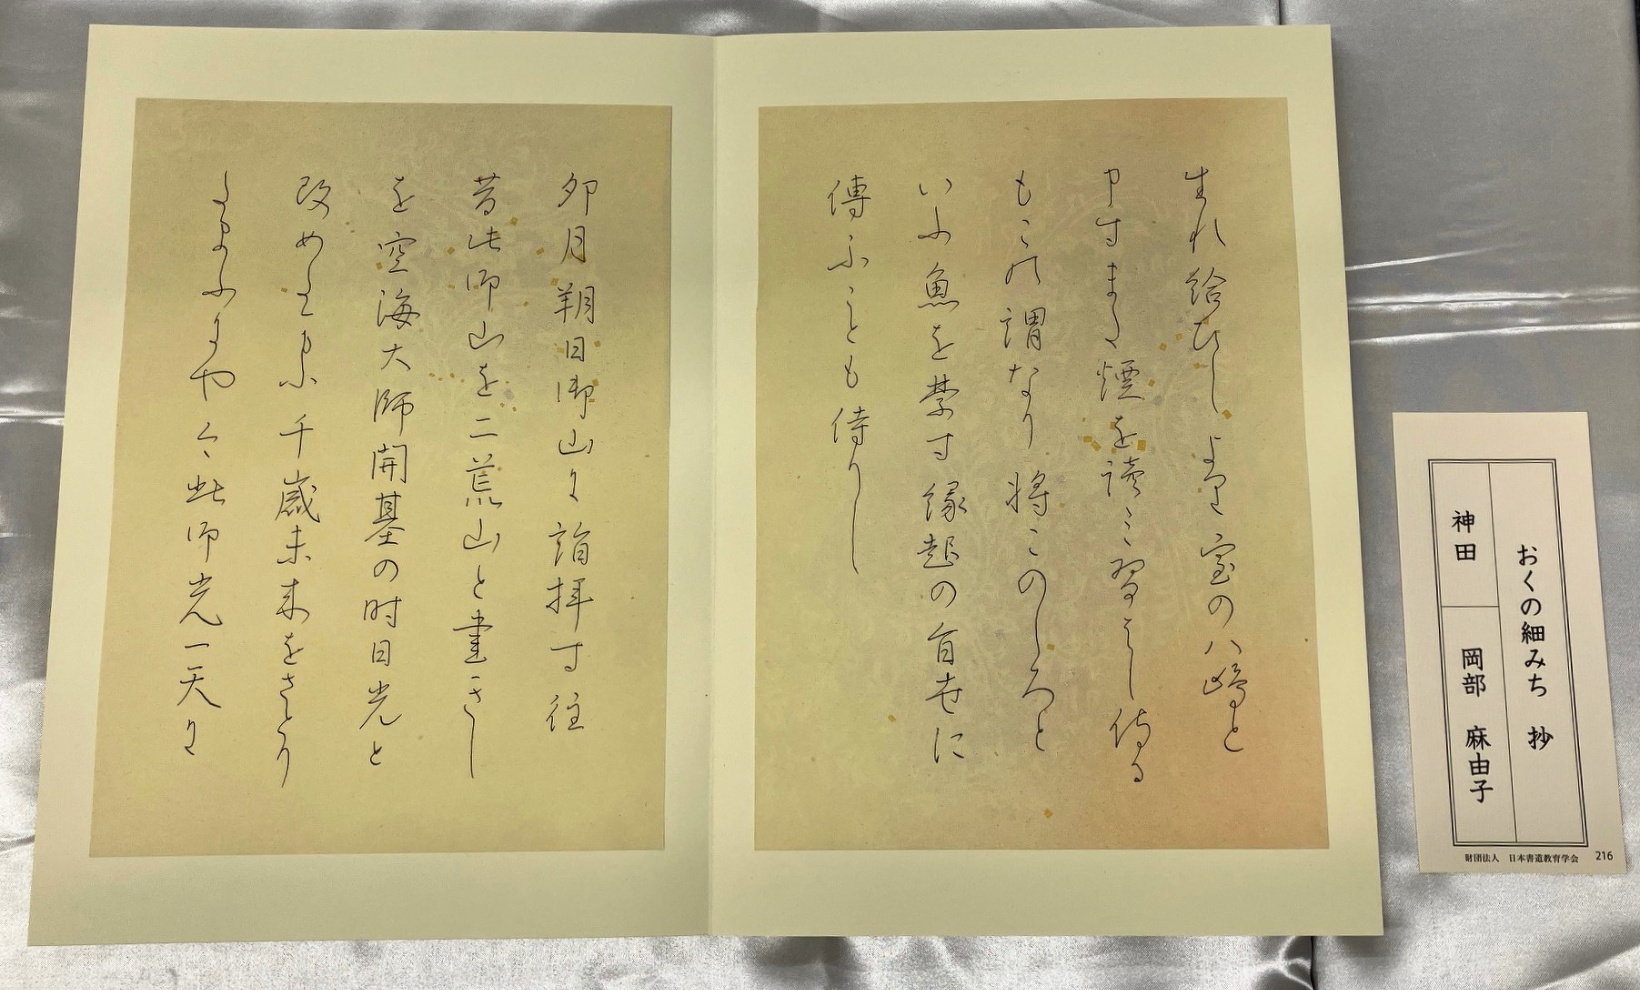 生れ給ひしより室の八嶋と
申すまた煙を読ミ習はし侍る
もこの謂なり将このしろと
いふ魚を禁す縁起の旨世に
傳ふことも侍りし
卯月朔日御山に詣拝す往
昔此御山を二荒山と書きし
を空海大師開基の时日光と
改めたまふ千歳未来をさとり
たまふにや今此御光一天に
おくの細みち 抄
神田 岡部 麻由子
財団法人 日本書道教育学会 216